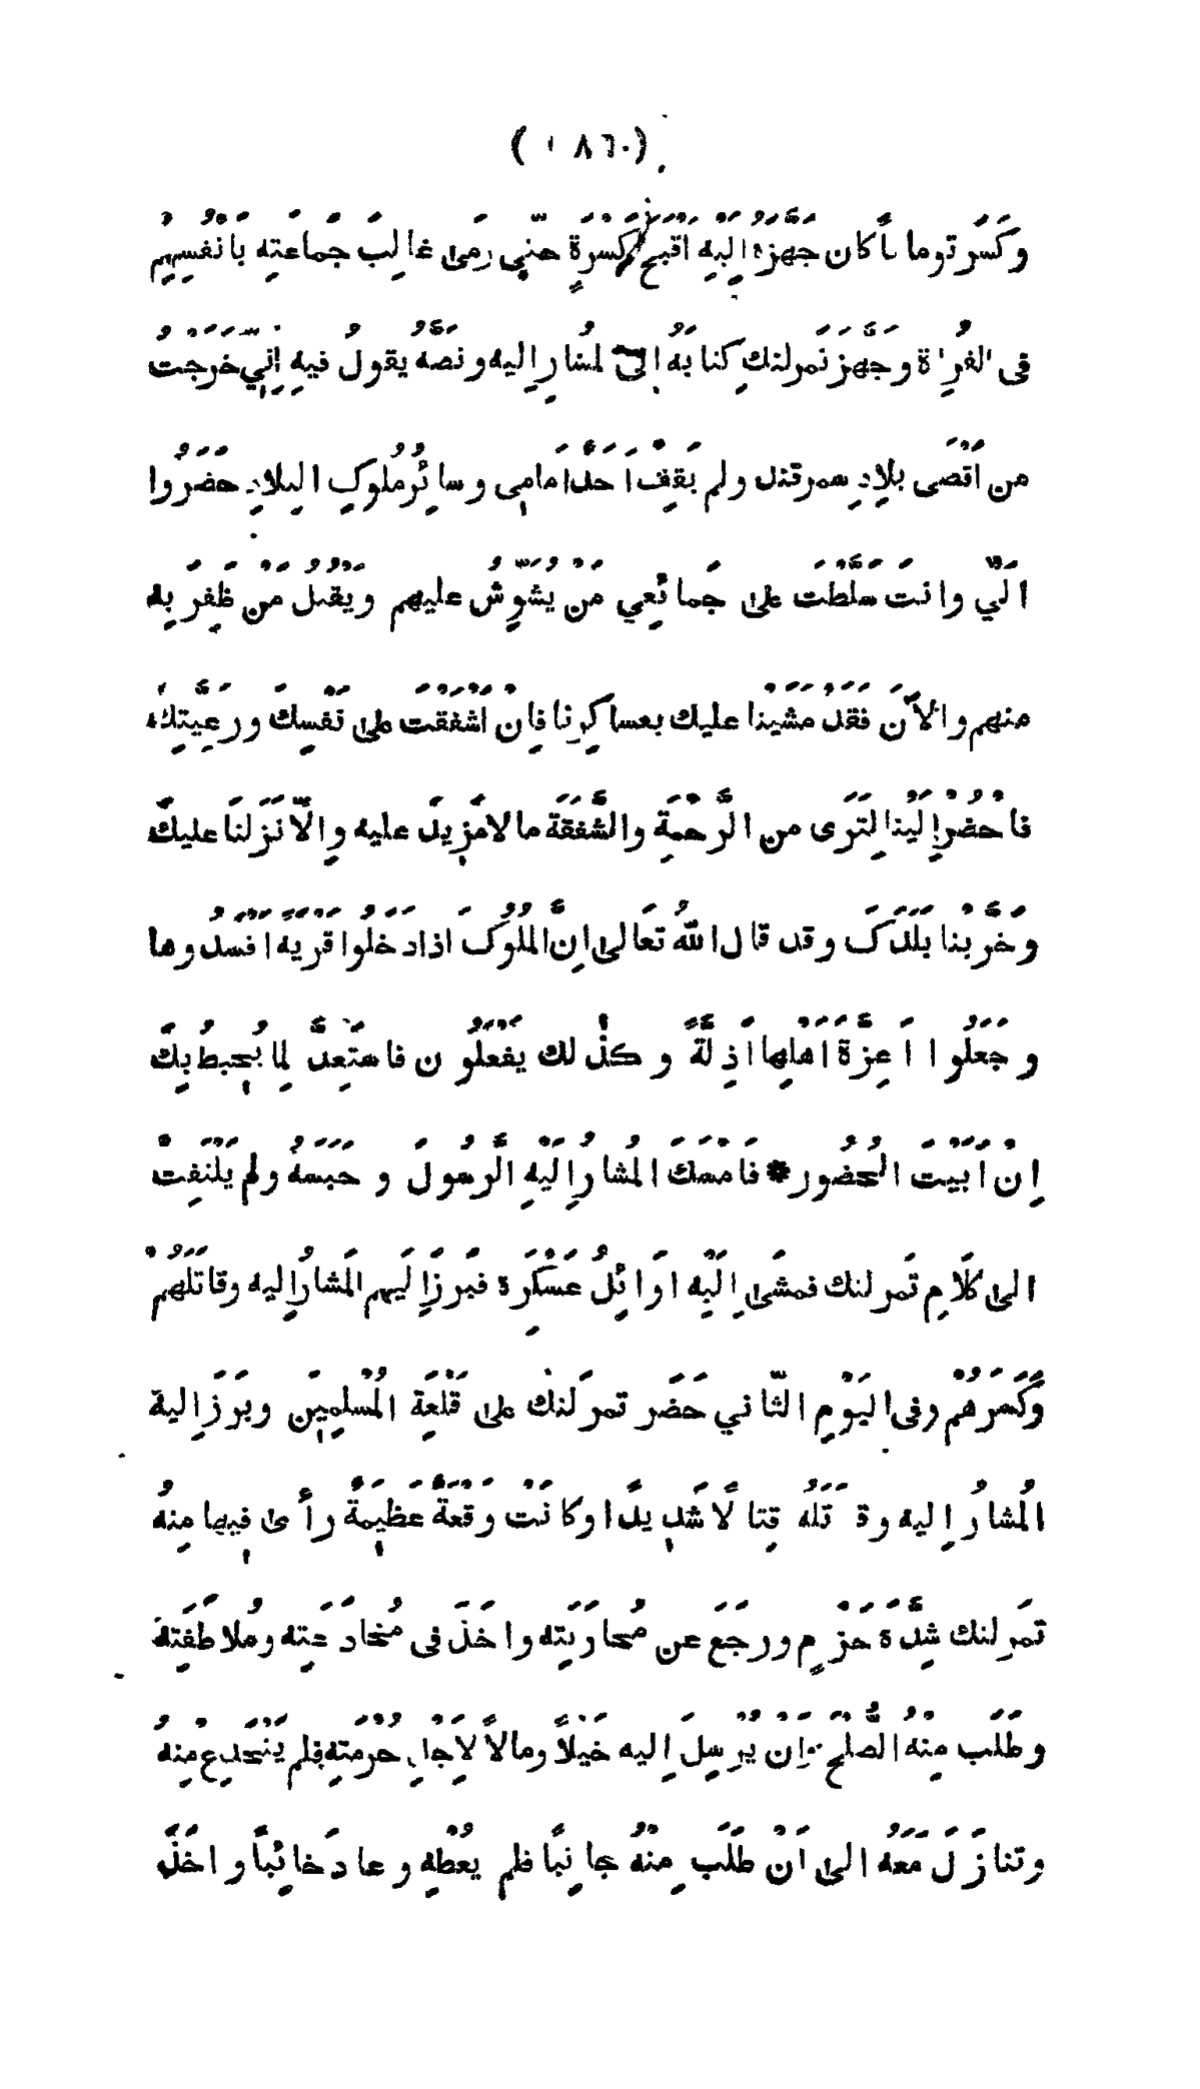 ( ١٨٦ )
وكَسَرتوما ناكان جَهَّزَهُ اِلَيْهِ اَقْبَحَ كَسْرَةٍ حتّى رَمى غالِبَ جَماعَتِهِ بَانْفُسِهِمْ
فى الفُراة وجَهَّزَ تَمرلنك كتابَهُ اِلى المُشارِ اليه ونصّهُ يقولُ فيهِ اِنّي خَرَجْتُ
من اَقْصَى بلادِ سمرقند ولم يَقِفْ اَحَدٌ اَمامِي وسائِرُ مُلُوكِ البِلادِ حَضَرُوا
اِلَيّ وانتَ سَلَّطْتَ على جَمائِعي مَنْ يُشَوِّشُ عليهم ويَقْتُلُ مَنْ ظَفِرَ بِه
منهم والآنَ فَقَدْ مَشَيْنا عليك بعساكِرِنا فاِنْ اَشْفَقْتَ على نَفْسِكَ ورَعِيَّتِكَ
فاحْضُرْ اِلَيْنا لِتَرَى من الرَّحْمَةِ والشَّفَقَةِ ما لا مَزِيدَ عليه واِلّا نَزَلنَا عليكَ
وخَرَّبْنا بَلَدَكَ وقد قال اللهُ تَعالى اِنَّ المُلُوكَ اذا دَخَلُوا قَرْيَةً اَفْسَدُوها
وجَعَلُوا اَعِزَّةَ اَهْلِها اَذِلَّةً وكذٰلك يَفْعَلُون فاستَعِدَّ لِما يُحِيطُ بِكَ
اِنْ اَبَيْتَ الحُضُور * فَاَمْسَكَ المُشارُ اِلَيْهِ الرَّسُولَ وحَبَسَهُ ولم يَلْتَفِتْ
الى كَلامِ تَمرلنك فمشى اِلَيْهِ اَوائِلُ عَسْكَرِه فبَرَزَ اِلَيهم المَشارُ اِليه وقاتَلَهُمْ
وكَسَرَهُمْ وفى اليَوْمِ الثّاني حَضَر تمرلَنْك على قَلْعَةِ المُسْلِمِيَن وبَرَزَ اِليه
المُشارُ اِليه وقاتَلَهُ قِتالًا شَدِيدًا وكانَتْ وَقْعَةً عَظِيمَةً رأى فِيها مِنْهُ
تمَرلنك شِدَّةَ حَزْمٍ ورَجَعَ عن مُحارَبَتِه واَخَذَ فى مُخادَعَتِه ومُلاطَفَتِه
وطَلَب مِنْهُ الصُّلْحَ واِن يُرْسِلَ اِليه خَيْلًا ومالًا لاَجْلِ حُرْمَتِهِ فلم يَنْخَدِعْ مِنْهُ
وتنازَلَ مَعَهُ الى اَنْ طَلَب مِنْهُ جانِبًا فلم يُعْطِه وعادَ خائِبًا واَخَذَ